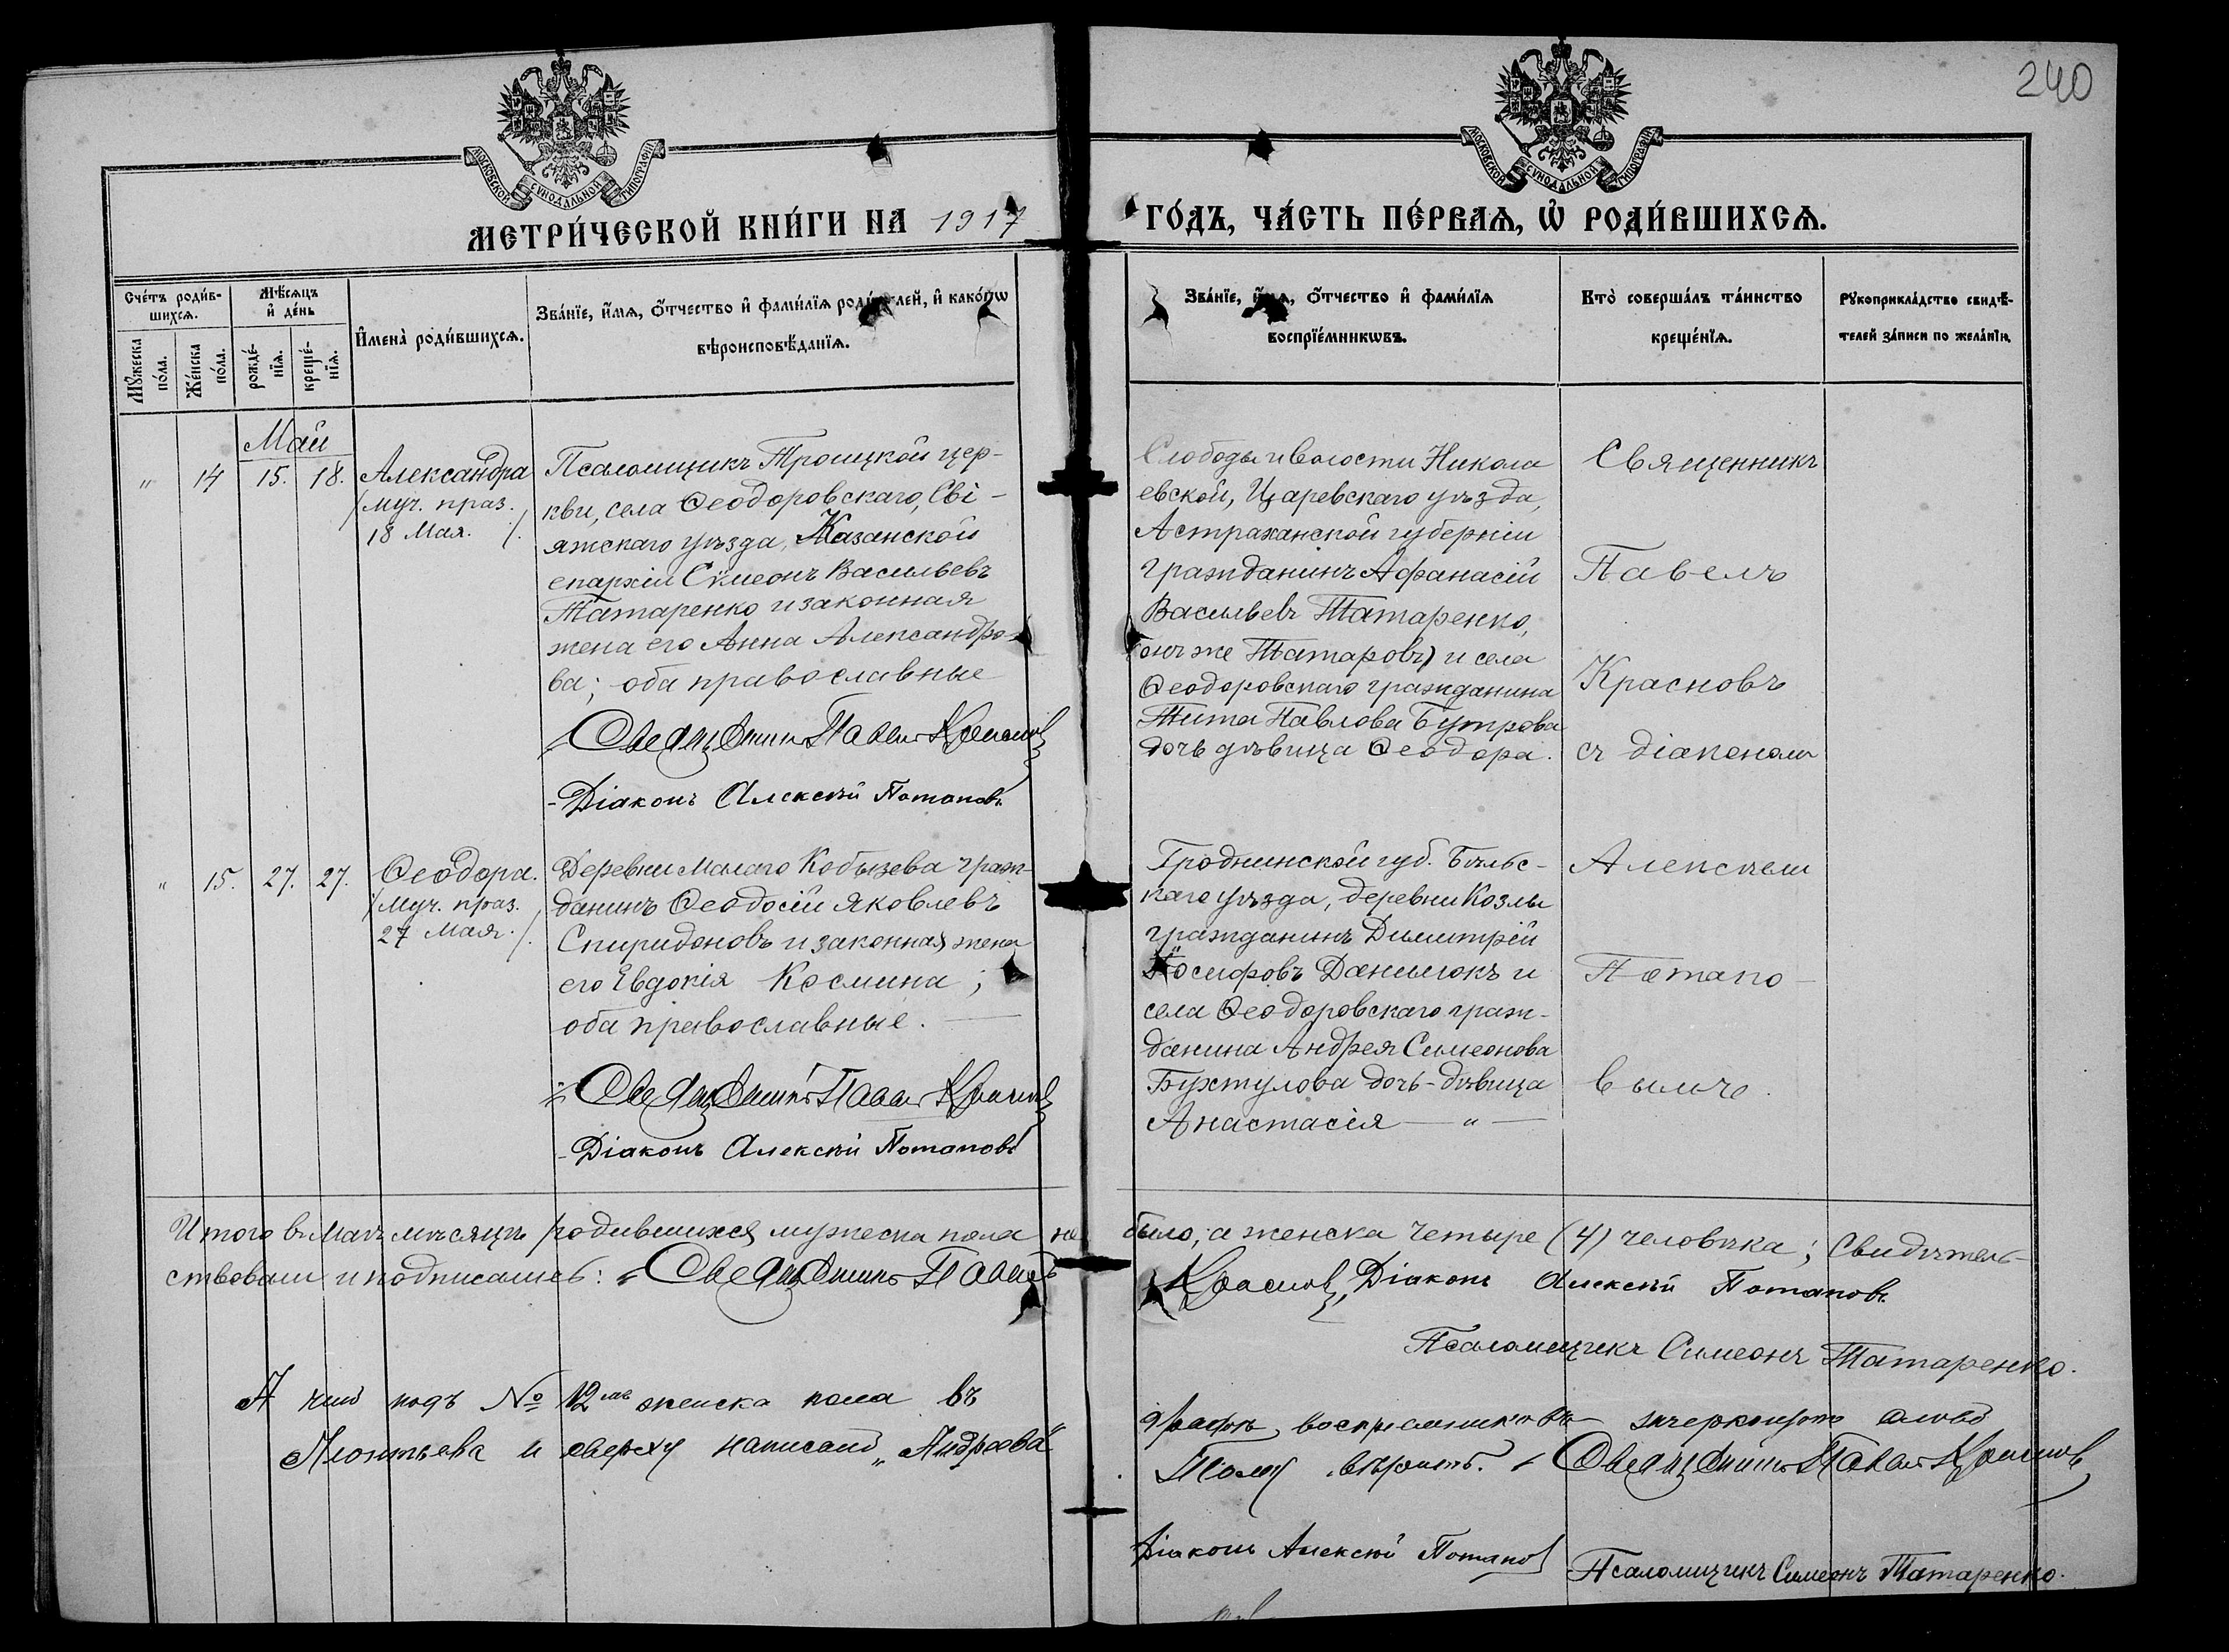 240
МОСКОВСКОЙ СѴНОДАЛЬНОЙ ТИПОГРАФІИ
МОСКОВСКОЙ СѴНОДАЛЬНОЙ ТИПОГРАФІИ
МЕТРИ́ЧЕСКОЙ КНИ́ГИ НА 1917
ГО́ДЪ, ЧА́СТЬ ПЕ́РВАѦ, Ѡ҆ РОДИ́ВШИХСѦ.
Сче́тъ роди́в-
шихсѧ.
Мꙋ́жеска по́ла.
Же́нска по́ла.
Мѣ́сѧцъ и҆ де́нь
рожде́-
нїѧ.
креще́-
нїѧ.
И҆мена̀ роди́вшихсѧ.
Зва́нїе, и҆́мѧ, ѻ҆́тчество и҆ фами́лїѧ роди́телей, и҆ како́гѡ
вѣроисповѣ́данїѧ.
Зва́нїе, и҆́мѧ, ѻ҆́тчество и҆ фами́лїѧ
воспрїе́мникѡвъ.
Кто̀ соверша́лъ та́инство
креще́нїѧ.
Рꙋкоприкла́дство свидѣ́-
телей за́писи по жела́нїю.
Май
" 14 15. 18.
Александра
/муч. праз.
18 Мая. /.
Псаломщикъ Троицкой цер-
кви, села Ѳеодоровскаго, Сві-
яжскаго уѣзда, Казанской
епархіи Сѵмеонъ Васильевъ
Татаренко и законная
жена его Анна Александро-
ва; оба православные
Священникъ Павелъ Красновъ
-Діаконъ Алексѣй Потаповъ
Слободы и волости Никола
евской, Царевскаго уѣзда,
Астраханской губерніи
гражданинъ Афанасій
Васильевъ Татаренко,
(онъ же Татаровъ) и села
Ѳеодоровскаго гражданина
Тита Павлова Бутрова
дочь дѣвица Ѳеодора.
Священникъ
Павелъ
Красновъ
съ діакономъ
" 15. 27. 27.
Ѳеодора.
/муч. праз.
27 Мая. /.
Деревни Малаго Кобызева граж-
данинъ Ѳеодосій Яковлевъ
Спиридоновъ и законная жена
его Евдокія Космина;
оба православные.
Священникъ Павелъ Красновъ
-Діаконъ Алексѣй Потаповъ
Гродненской губ. Бѣльс-
каго уѣзда, деревни Козлы
гражданинъ Димитрій
Іосифовъ Данилюкъ и
села Ѳеодоровскаго граж-
данина Андрея Симеонова
Бухтулова дочь-дѣвица
Анастасія — " —
Алексѣем
Потапо-
вымъ.
Итого въ Маѣ мѣсяцѣ родившихся мужеска пола не было; а женска четыре (4) человѣка; Свидѣтель-
ствовали и подписались: Священникъ Павелъ Красновъ, Діаконъ Алексѣй Потаповъ
Псаломщикъ Симеонъ Татаренко.
А что подъ № 12 женска пола въ графѣ воспріемниковъ зачеркнуто слово
Леонтьева и сверху написано „Андреева"
Тому вѣрить. Священникъ Павелъ Красновъ
Діаконъ Алексѣй Потаповъ
Псаломщикъ Симеонъ Татаренко.